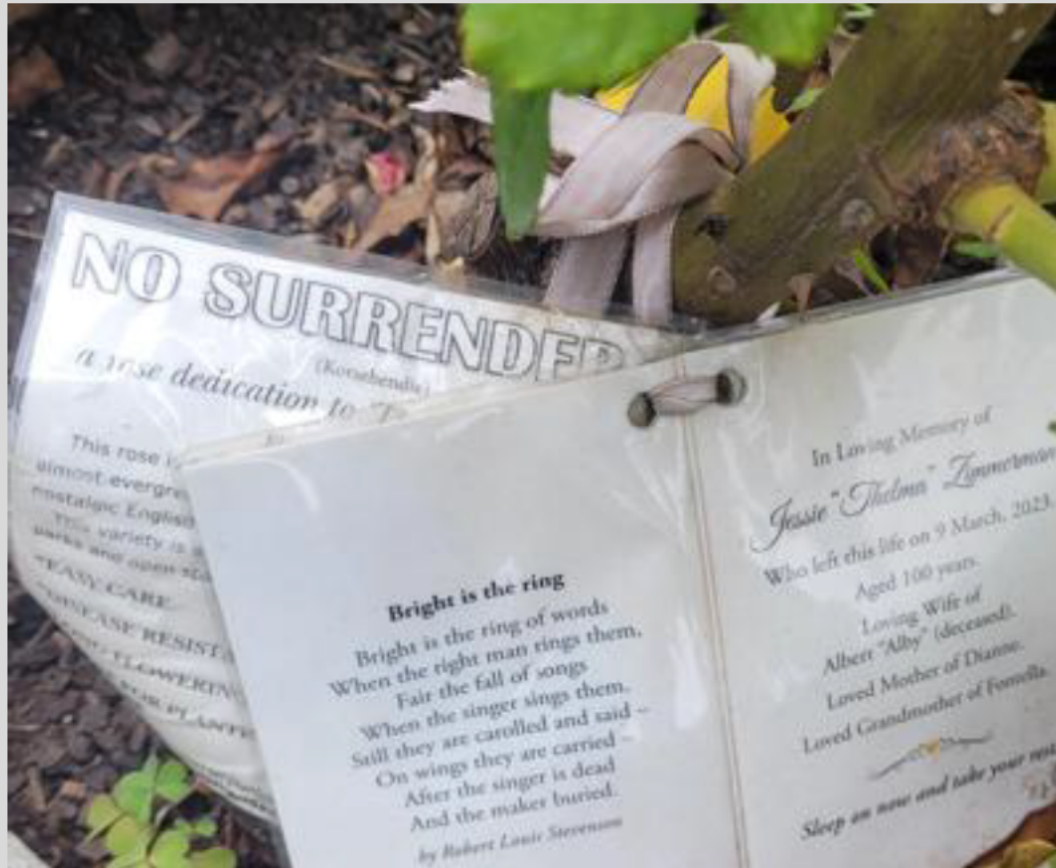 NO SURRENDER
(Korsebendix)
a rose dedication to "T
This rose i
almost evergre
nostalgic English
This variety is a
parks and open sp
*EASY CARE
DISEASE RESIST
FLOWERIN
FOR PLANTI
Bright is the ring
Bright is the ring of words
When the right man rings them,
Fair the fall of songs
When the singer sings them.
Still they are carolled and said –
On wings they are carried –
After the singer is dead
And the maker buried.
by Robert Louis Stevenson
In Loving Memory of
Jessie "Thelma" Zimmerman
Who left this life on 9 March, 2023.
Aged 100 years.
Loving Wife of
Albert "Alby" (deceased).
Loved Mother of Dianne.
Loved Grandmother of Fontella.
Sleep on now and take your rest